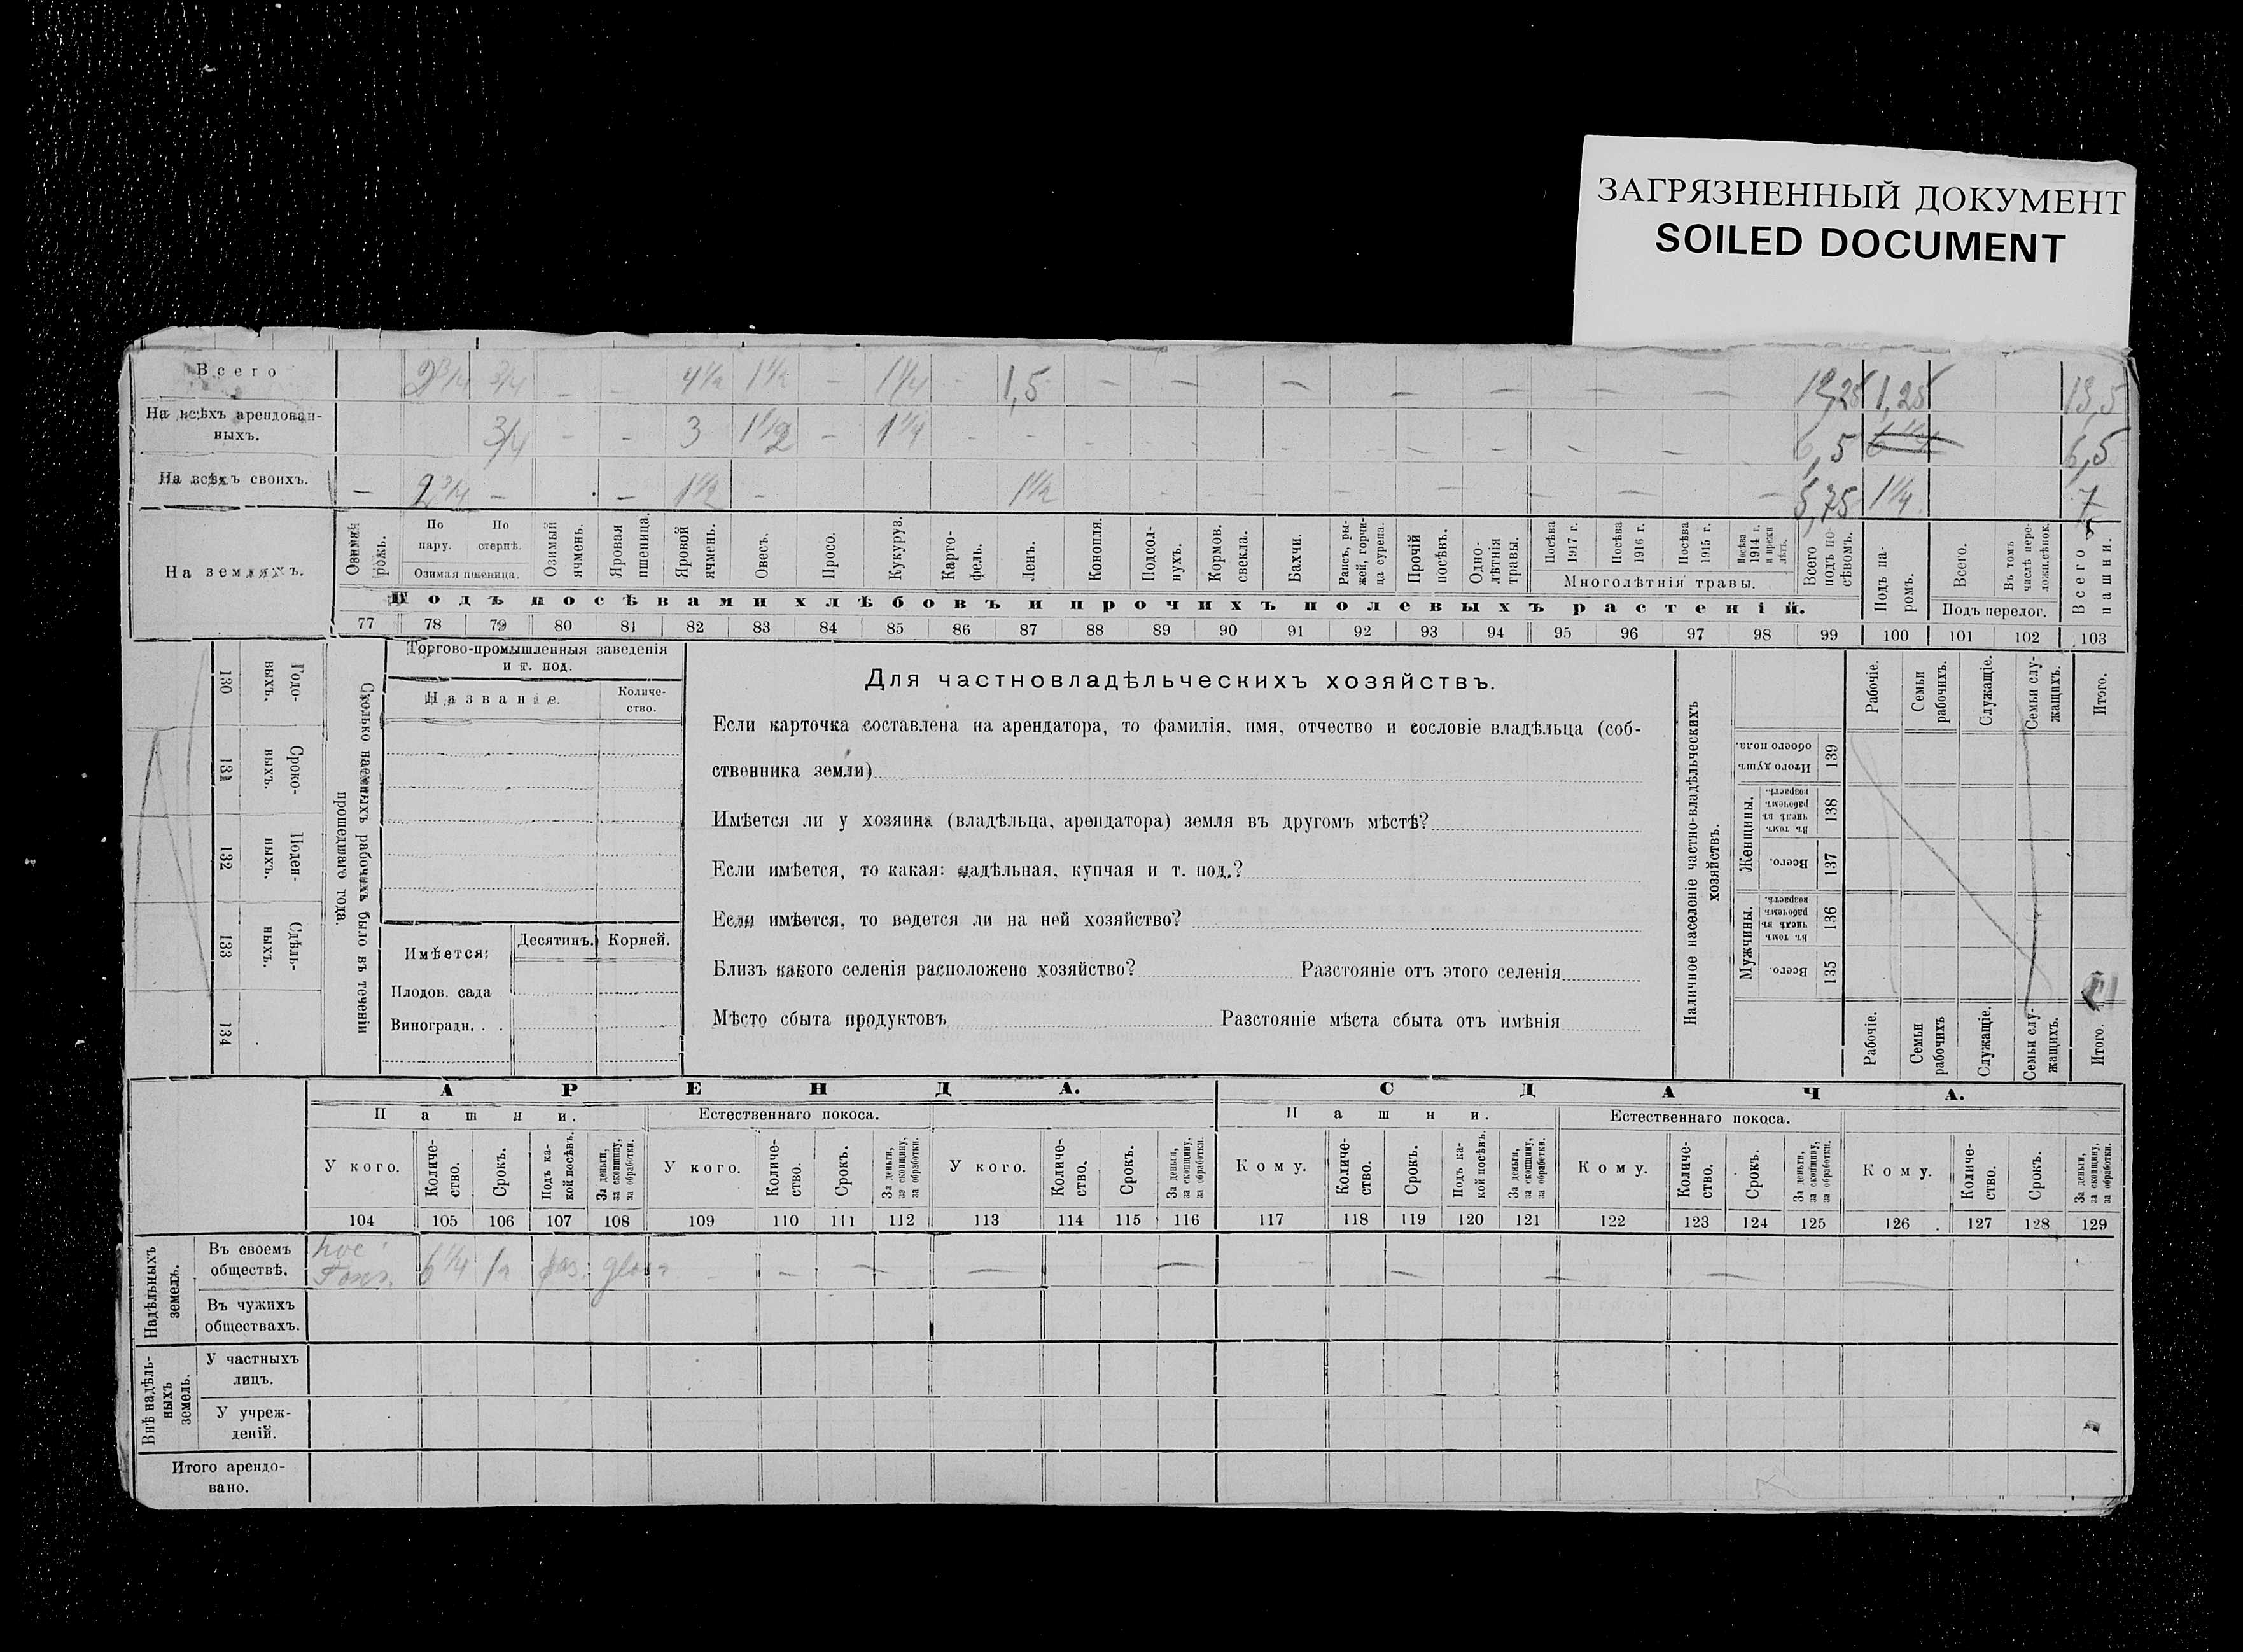 ЗАГРЯЗНЕННЫЙ ДОКУМЕНТ
SOILED DOCUMENT
Всего 2 3/4 3/4 – – 4 1/2 1 1/2 – 1 1/4 – 1,5 – – – – – – – 12,25 1,25 13,5
На всѣхъ арендован-
ныхъ. 3/4 – – 3 1 1/2 – 1 1/4 – – – – – – – – – – – 6,5 6,5
На всѣхъ своихъ. – 2 3/4 – – 1 1/2 – 1 1/2 – – – – – – – 5,75 1 1/4 7
На земляхъ.
Озимая рожь.
По пару.
По стерпѣ.
Озимая пшеница.
Озимый ячмень.
Яровая пшеница.
Яровой ячмень.
Овесъ.
Просо.
Кукуруз.
Карто-
фель.
Ленъ.
Конопля.
Подсол-
нухъ.
Кормов. свекла.
Бахчи.
Рапсъ, ры-
жей, горчи-
ца сурепа.
Прочій посѣвъ.
Одно-
лѣтнія травы.
Посѣва 1917 г.
Посѣва 1916 г.
Посѣва 1915 г.
Посѣва 1914 г. и прежн лѣтъ.
Многолѣтнія травы.
Всего подъ по-
сѣвомъ.
Подъ па-
ромъ.
Всего.
Въ томъ числѣ пере-
ложн.сѣнок.
Подъ перелог.
Всего пашни.
Подъ посѣвами хлѣбовъ и прочихъ полевыхъ растеній.
77 78 79 80 81 82 83 84 85 86 87 88 89 90 91 92 93 94 95 96 97 98 99 100 101 102 103
130 Годо-
выхъ.
131 Сроко-
ныхъ.
132 Поден-
ныхъ.
133 Сдѣль-
ныхъ.
134
Сколько наемныхъ рабочихъ было въ теченіи
прошедшаго года.
Торгово-промышленныя заведенія
и т. под.
Названіе.
Количе-
ство.
Имѣется: Десятинъ. Корней.
Плодов. сада
Виноградн. . .
Для частновладѣльческихъ хозяйствъ.
Если карточка составлена на арендатора, то фамилія, имя, отчество и сословіе владѣльца (соб-
ственника земли)
Имѣется ли у хозяина (владѣльца, арендатора) земля въ другомъ мѣстѣ?
Если имѣется, то какая: надѣльная, купчая и т. под.?
Если имѣется, то ведется ли на ней хозяйство?
Близъ какого селенія расположено хозяйство? Разстояніе отъ этого селенія
Мѣсто сбыта продуктовъ Разстояніе мѣста сбыта отъ имѣнія
Наличное населеніе частно-владѣльческихъ
хозяйствъ.
Рабочіе.
Семьи рабочихъ.
Служащіе.
Семьи слу-
жащихъ.
Итого.
Итого душъ обоего пола. 139
Женщины.
Въ томъ числѣ въ рабочемъ возрастѣ. 138
Всего. 137
Мужчины.
Въ томъ числѣ въ рабочемъ возрастѣ. 136
Всего. 135
Рабочіе.
Семьи рабочихъ
Служащіе.
Семьи слу-
жащихъ.
Итого.
АРЕНДА. СДАЧА.
Пашни. Естественнаго покоса. Пашни. Естественнаго покоса.
У кого.
Количе-
ство.
Срокъ.
Подъ ка-
кой посѣвъ.
За деньги, за скопщину, за обработки.
У кого.
Количе-
ство.
Срокъ.
За деньги, за скопщину, за обработки.
У кого.
Количе-
ство.
Срокъ.
За деньги, за скопщину, за обработки.
Кому.
Количе-
ство.
Срокъ.
Подъ ка-
кой посѣвъ.
За деньги, за скопщину, за обработки.
Кому.
Количе-
ство.
Срокъ.
За деньги, за скопщину, за обработки.
Кому.
Количе-
ство.
Срокъ.
За деньги, за скопщину, за обработки.
104 105 106 107 108 109 110 111 112 113 114 115 116 117 118 119 120 121 122 123 124 125 126 127 128 129
Надѣльныхъ земель.
Въ своемъ
обществѣ. 6 1/4 – – – – – – – – –
Въ чужихъ
обществахъ.
Внѣ надѣль-
ныхъ земель.
У частныхъ
лицъ.
У учреж-
деній.
Итого арендо-
вано.